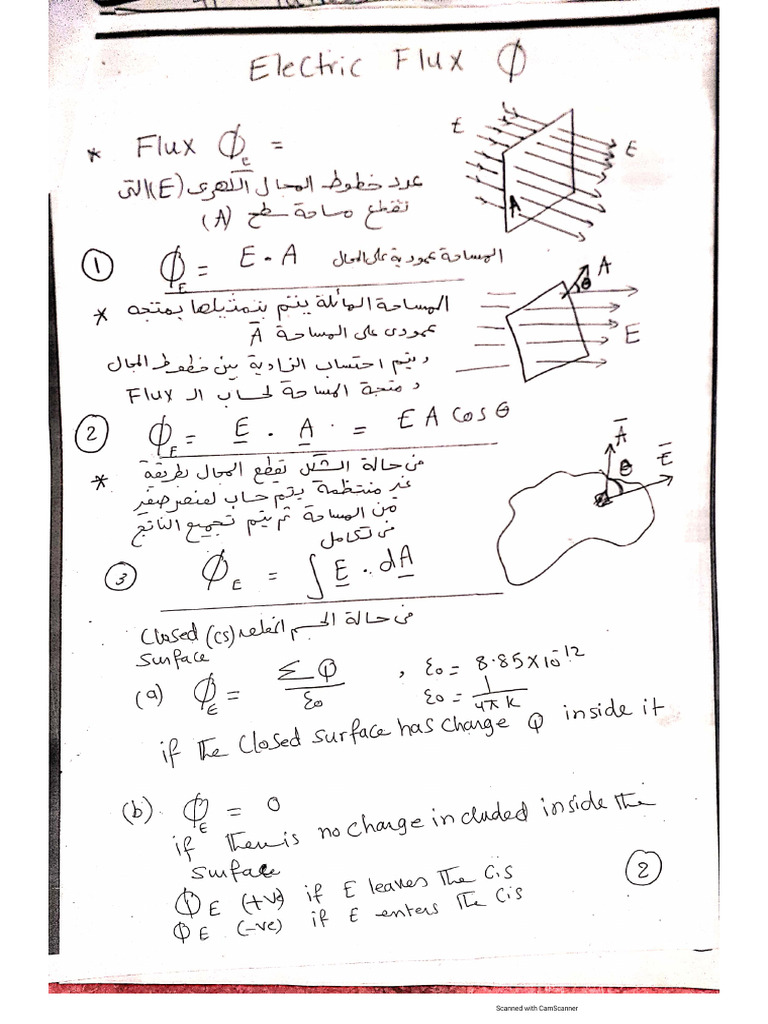 Electric Flux ϕ
* Flux ϕE =
عدد خطوط المجال الكهربى (E) التى
تقطع مساحة سطح (A)
E
E
A
① ϕE = E · A المساحة عمودية على المجال
* المساحة المائلة يتم تمثيلها بمتجه
عمودى على المساحة A
ويتم احتساب الزاوية بين خطوط المجال
و متجة المساحة لحساب الـ Flux
A
θ
E
② ϕE = E · A = E A cos θ
* فى حالة الشكل تقطع المجال بطريقة
غير منتظمة يتم حساب لعنصر صغير
من المساحة ثم يتم تجميع الناتج
فى تكامل
A
θ
E
③ ϕE = ∫ E · dA
فى حالة الجسم المغلق (cs) Closed
Surface
(a) ϕE = ΣQ/ε0 , ε0 = 8.85x10-12
ε0 = 1/4πk
if the closed surface has charge Q inside it
(b) ϕE = 0
if there is no charge included inside the
surface
ϕE (+ve) if E leaves the C.S
ϕE (-ve) if E enters the C.S
②
Scanned with CamScanner